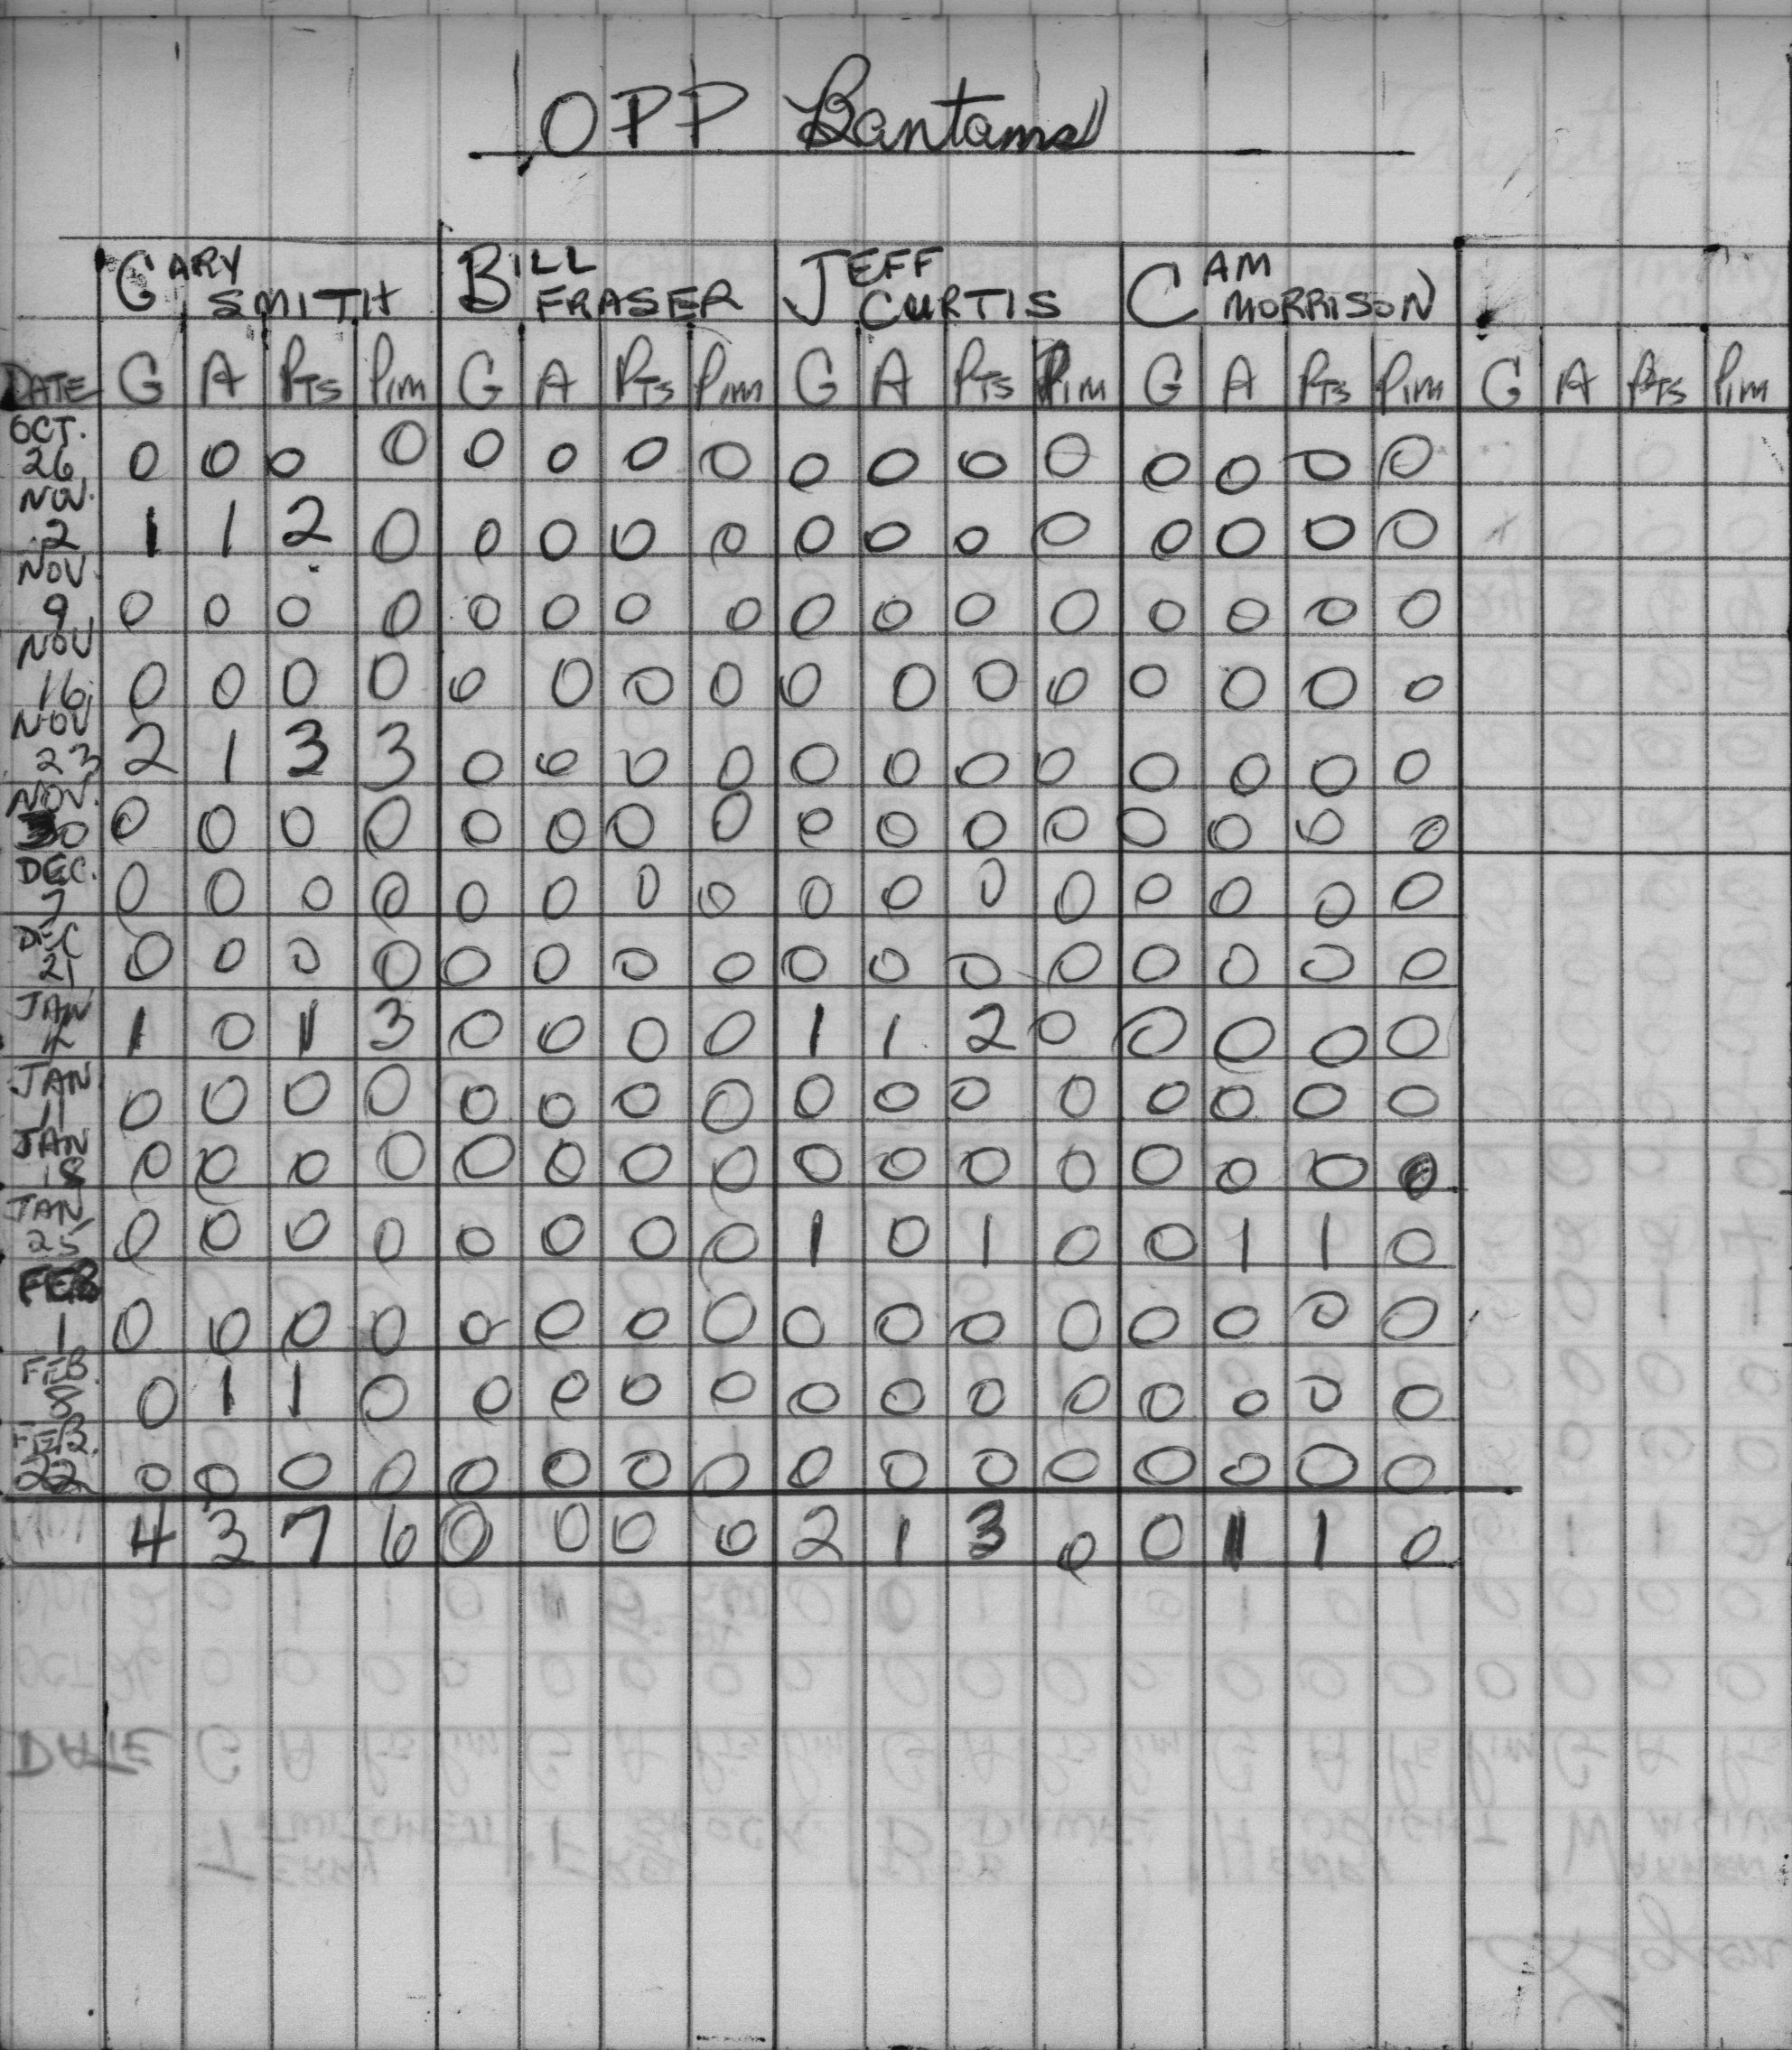 OPP Bantams
GARY SMITH BILL FRASER JEFF CURTIS CAM MORRISON
DATE G A PTS PIM G A PTS PIM G A PTS PIM G A PTS PIM G A PTS PIM
OCT. 26 0 0 0 0 0 0 0 0 0 0 0 0 0 0 0 0
NOV. 2 1 1 2 0 0 0 0 0 0 0 0 0 0 0 0 0
NOV. 9 0 0 0 0 0 0 0 0 0 0 0 0 0 0 0 0
NOV 16 0 0 0 0 0 0 0 0 0 0 0 0 0 0 0 0
NOV 23 2 1 3 3 0 0 0 0 0 0 0 0 0 0 0 0
NOV. 30 0 0 0 0 0 0 0 0 0 0 0 0 0 0 0 0
DEC. 7 0 0 0 0 0 0 0 0 0 0 0 0 0 0 0 0
DEC 21 0 0 0 0 0 0 0 0 0 0 0 0 0 0 0 0
JAN 4 1 0 1 3 0 0 0 0 1 1 2 0 0 0 0 0
JAN 11 0 0 0 0 0 0 0 0 0 0 0 0 0 0 0 0
JAN 18 0 0 0 0 0 0 0 0 0 0 0 0 0 0 0 0
JAN 25 0 0 0 0 0 0 0 0 1 0 1 0 0 1 1 0
FEB 1 0 0 0 0 0 0 0 0 0 0 0 0 0 0 0 0
FEB. 8 0 1 1 0 0 0 0 0 0 0 0 0 0 0 0 0
FEB. 22 0 0 0 0 0 0 0 0 0 0 0 0 0 0 0 0
4 3 7 6 0 0 0 0 2 1 3 0 0 1 1 0